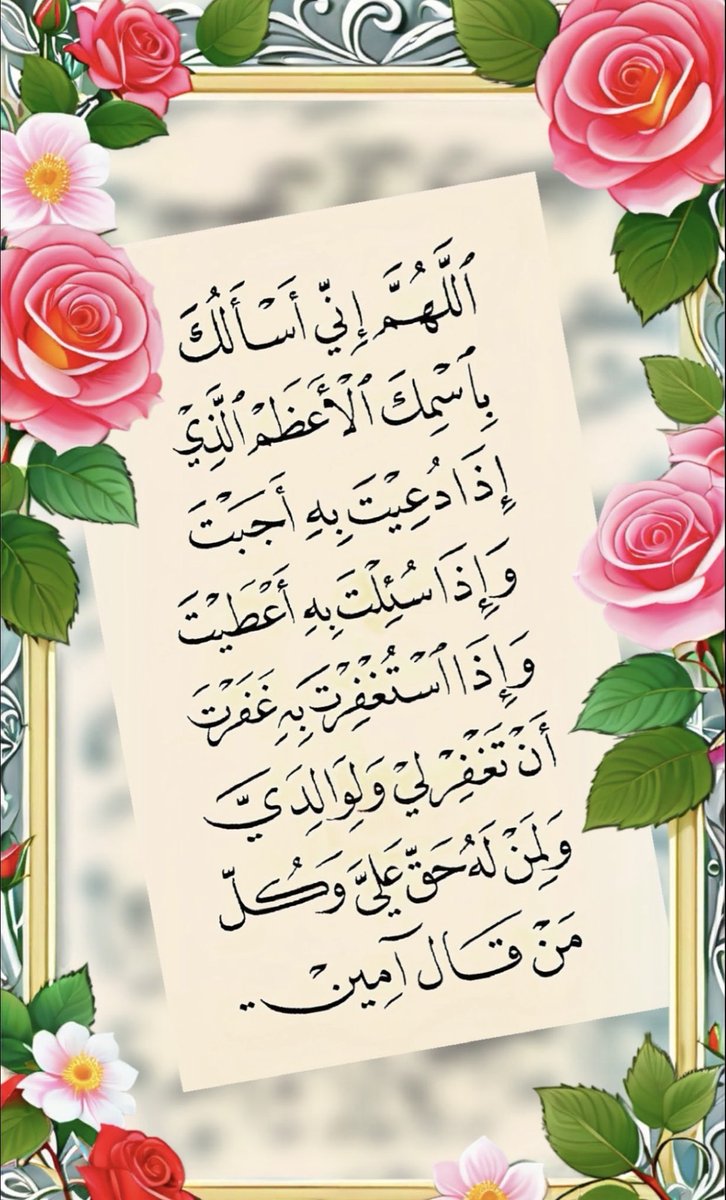 ٱللَّهُمَّ إِنِّي أَسْأَلُكَ
بِٱسْمِكَ ٱلْأَعْظَمْ ٱلَّذِيْ
إِذَا دُعِيْتَ بِهِ أَجَبْتَ
وَإِذَا سُئِلْتَ بِهِ أَعْطَيْتَ
وَإِذَا ٱسْتُغْفِرْتَ بِهِ غَفَرْتَ
أَنْ تَغْفِرْ لِيْ وَلِوَالِدَيَّ
وَلِمَنْ لَهُ حَقّ عَلَيَّ وَكُلّ
مَنْ قَالَ آمِينْ..